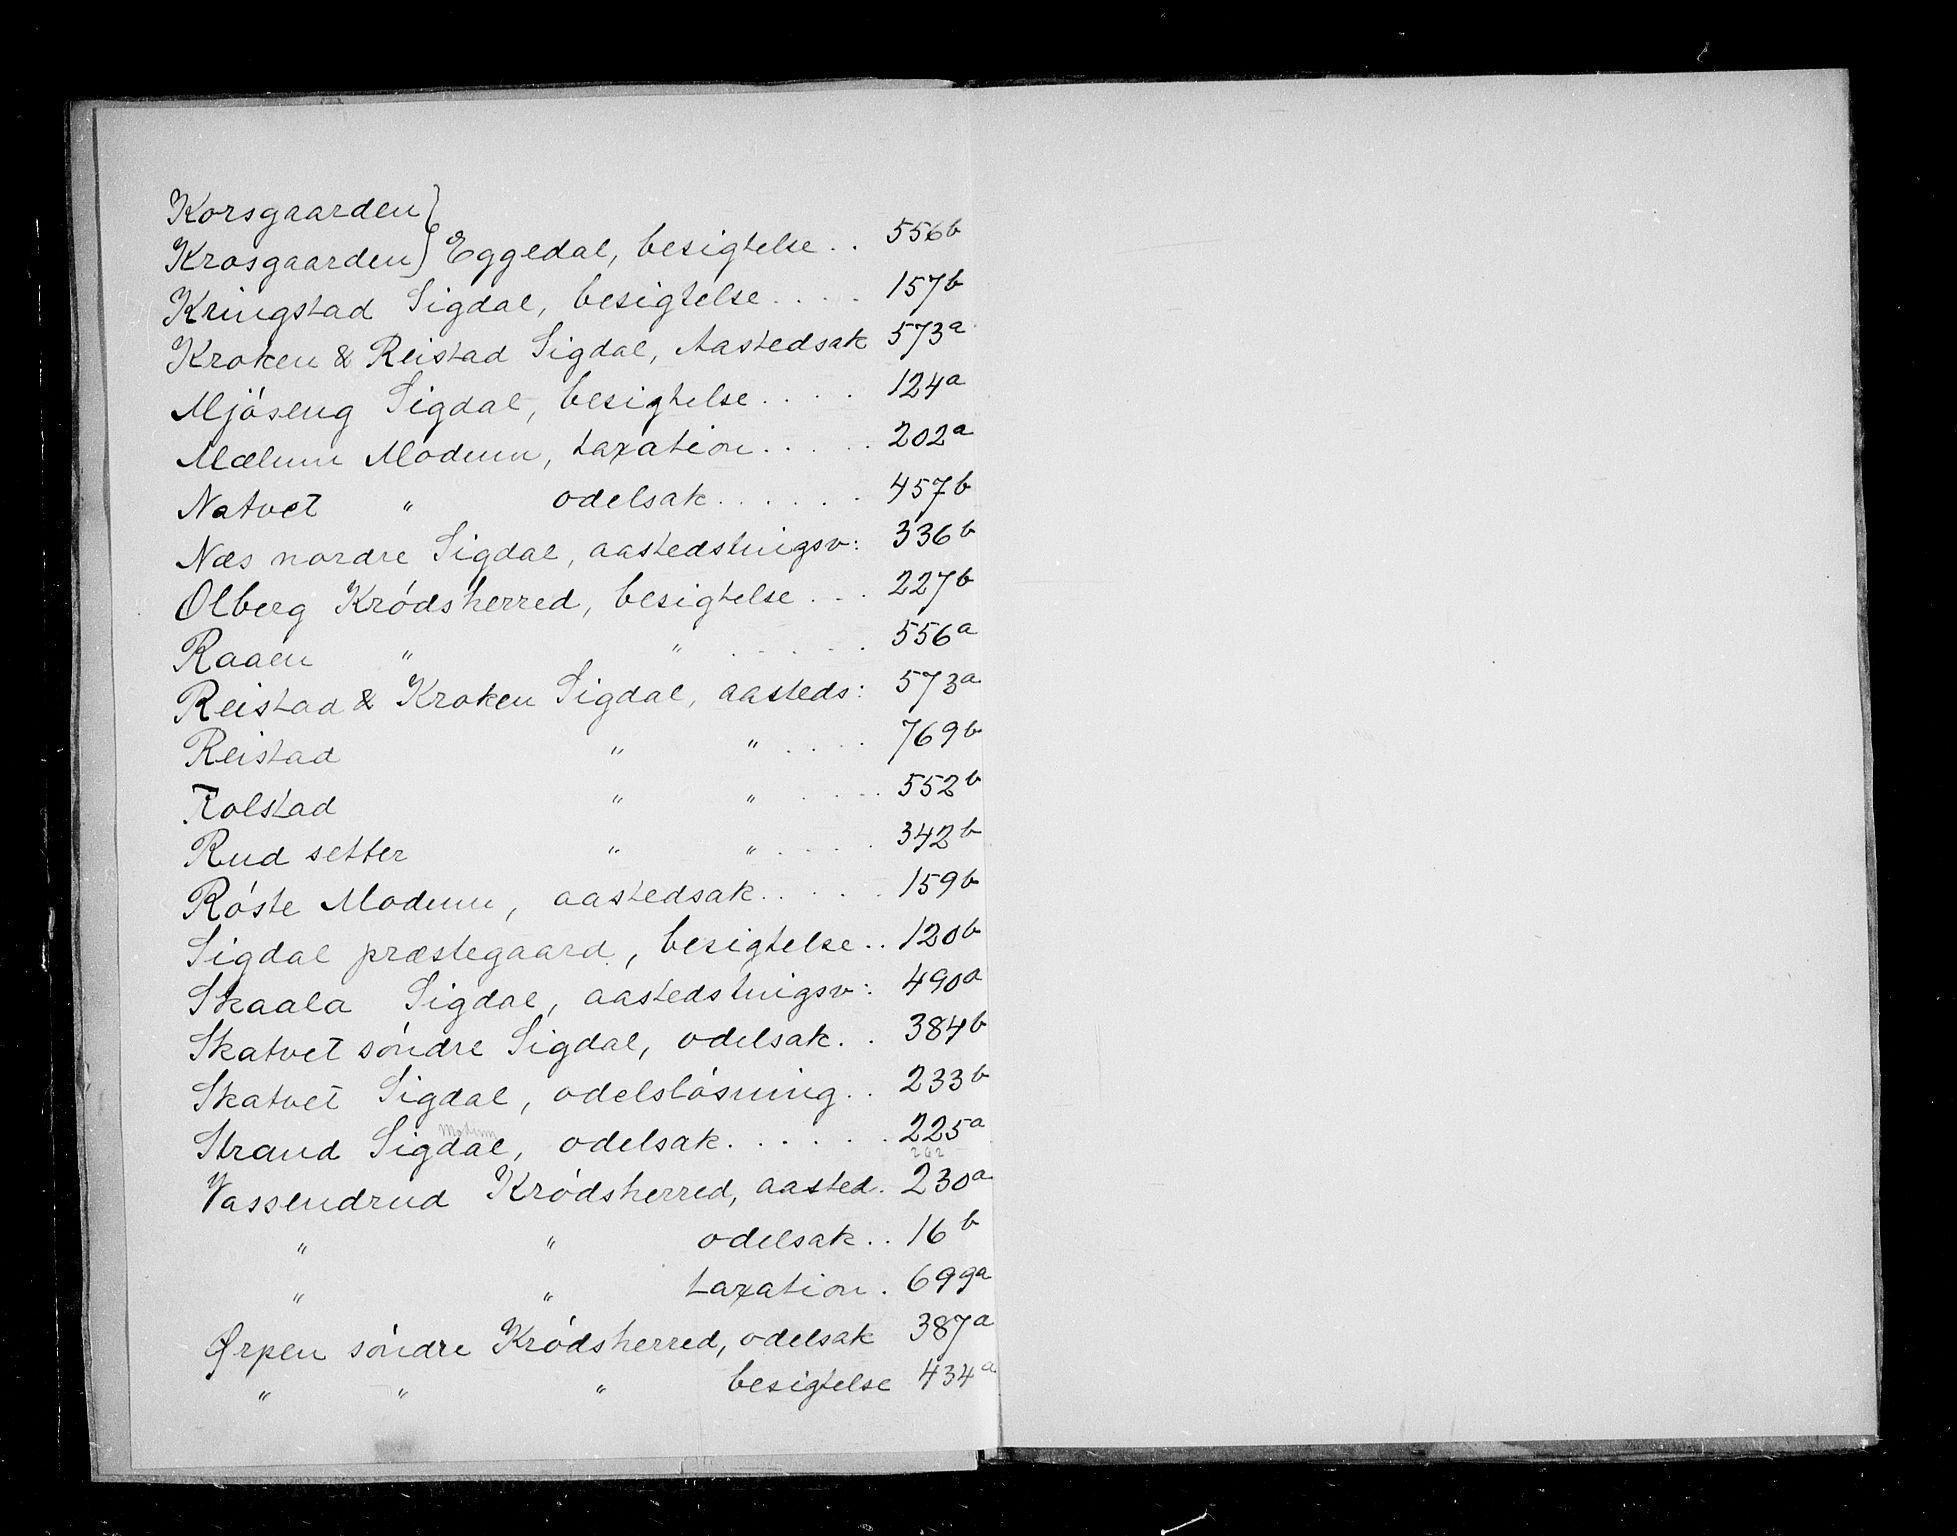 Korsgaarden }
Krosgaarden } Eggedal, besigtelse . . 556b
Kringstad Sigdal, besigtelse . . . . 157b
Kroken & Reistad Sigdal, Aastedsak 573a
Mjøseng Sigdal, besigtelse . . . . 124a
Mælum Modum, taxation . . . . . 202a
Natvet " odelsak . . . . . . 457b
Næs nordre Sigdal, aastedstingsv: 336b
Olberg Krødsherred, besigtelse . . . 227b
Raaen " " . . . . . 556a
Reistad & Kroken Sigdal, aasteds: 573a
Reistad " " . . . . 769b
Rolstad " " . . . . 552b
Rud setter " " . . . . . 342b
Røste Modum, aastedsak . . . . . 159b
Sigdal præstegaard, besigtelse . . 120b
Skaala Sigdal, aastedstingsv: 490a
Skatvet søndre Sigdal, odelsak . . 384b
Skatvet Sigdal, odelsløsning . . 233b
Modum
Strand Sigdal, odelsak . . . . . . 225a
262
Vassendrud Krødsherred, aasted. 230a
" " odelsak . . 16b
" " taxation . 699a
Ørpen søndre Krødsherred, odelsak 387a
" " " besigtelse 434a